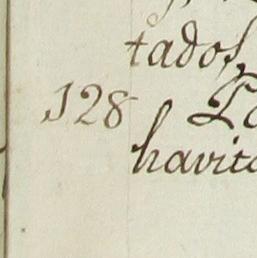 tados,
128
havita